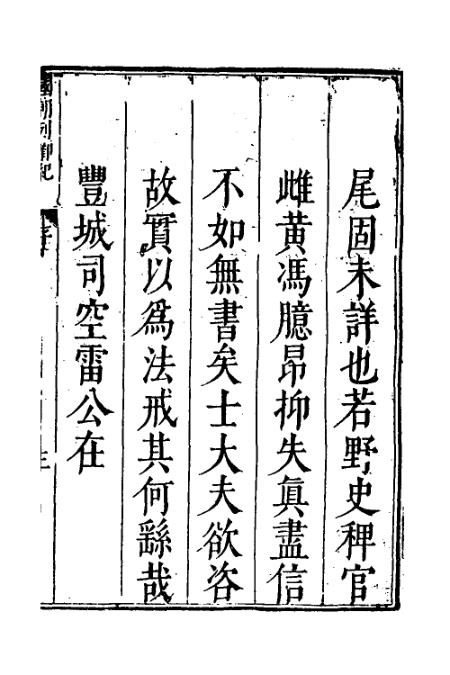 尾固未詳也若野史稗官
雌黃馮臆昂抑失眞盡信
不如無書矣士大夫欲咨
故實以爲法戒其何繇哉
豐城司空雷公在
國朝列卿紀